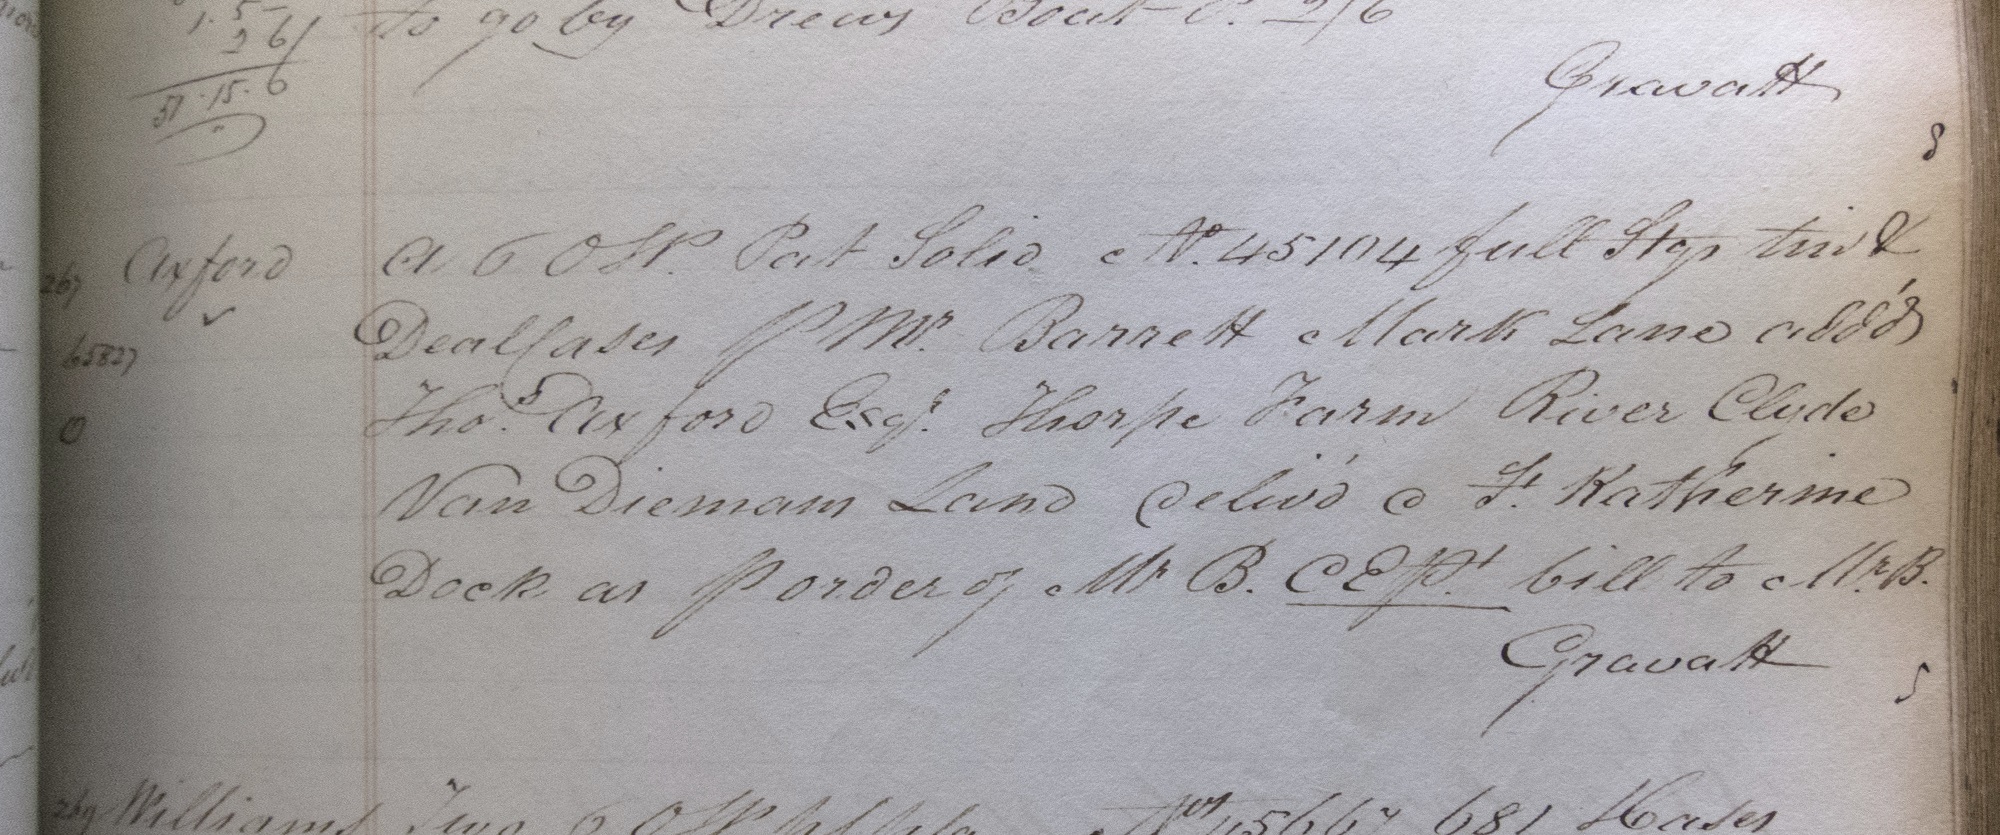 1. 5 -
2 6 to go by Drews Boat P. 2/6
51.15.6
Gravatt
8
267 Axford A 6 OSP. Pat Solid No. 45104 full Stop tin &
65827 Deal Cases P Mr. Barrett Mark Lane add'd
0 Thos. Axford Esqr. Thorpe Farm River Clyde
Van Diemans Land deliv'd @ St. Katherine
Dock as P order of Mr B. bill to Mr. B.
Gravatt
5
269 Williams Two 6 Nos 45667 681 Cases